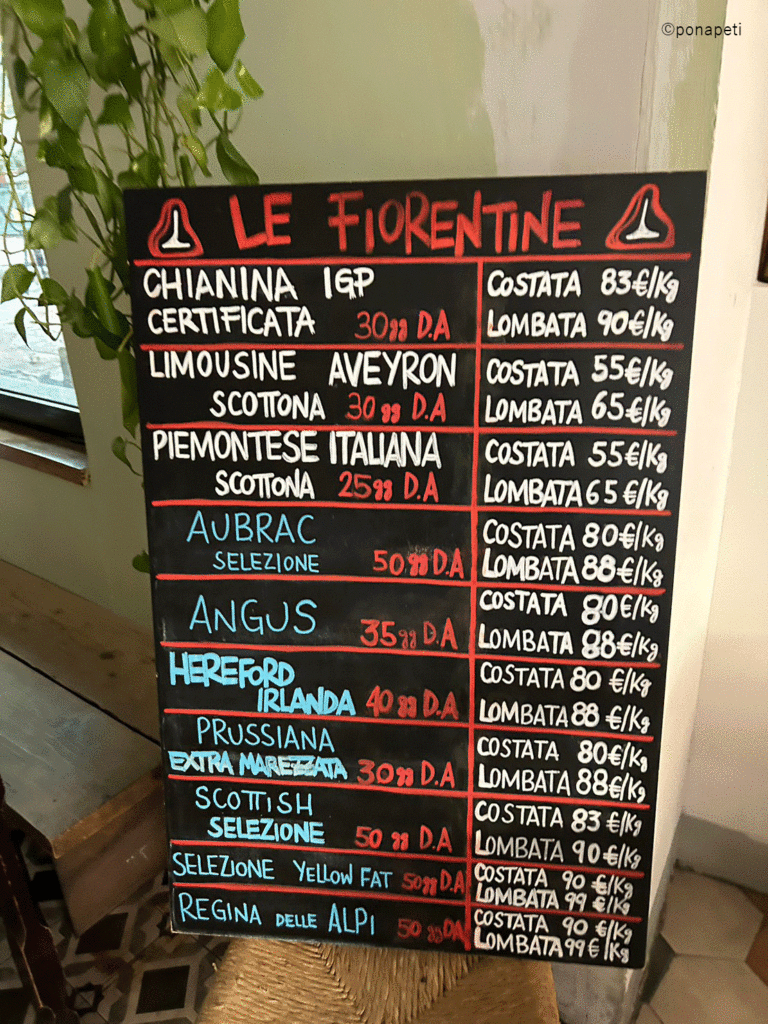 ©ponapeti
LE FIORENTINE
CHIANINA IGP COSTATA 83€/Kg
CERTIFICATA 30gg D.A LOMBATA 90€/Kg
LIMOUSINE AVEYRON COSTATA 55€/Kg
SCOTTONA 30gg D.A LOMBATA 65€/Kg
PIEMONTESE ITALIANA COSTATA 55€/Kg
SCOTTONA 25gg D.A LOMBATA 65€/Kg
AUBRAC COSTATA 80€/Kg
SELEZIONE 50gg D.A LOMBATA 88€/Kg
ANGUS COSTATA 80€/Kg
35gg D.A LOMBATA 88€/Kg
HEREFORD COSTATA 80 €/Kg
IRLANDA 40gg D.A LOMBATA 88 €/Kg
PRUSSIANA COSTATA 80€/Kg
EXTRA MAREZZATA 30gg D.A LOMBATA 88€/Kg
SCOTTISH COSTATA 83 €/Kg
SELEZIONE 50 gg D.A LOMBATA 90€/Kg
SELEZIONE YELLOW FAT 50gg D.A COSTATA 90 €/Kg
LOMBATA 99 €/Kg
REGINA DELLE ALPI 50 gg DA COSTATA 90 €/Kg
LOMBATA 99€/Kg